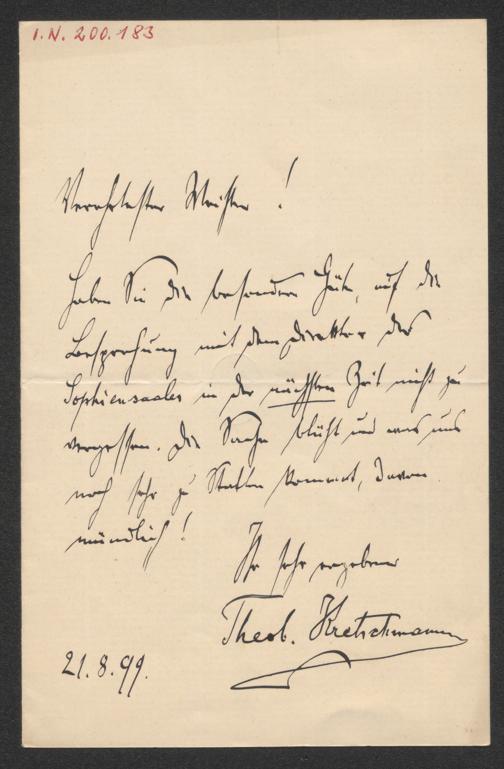 I.N. 200.183
Verehrtester Meister!
Haben Sie die besondere Güte, auf die
Besprechung mit dem Direktor des
Sophiensaales in der nächsten Zeit nicht zu
vergessen. Die Sache blüht und was uns
noch sehr zu Statten kommt, davon
mündlich!
Ihr sehr ergebener
Theob. Kretschmann
21.8.99.